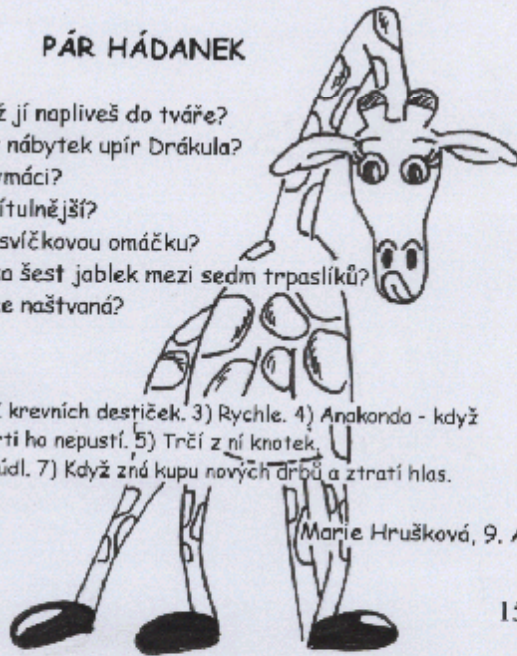 PÁR HÁDANEK
ž jí napliveš do tváře?
nábytek upír Drákula?
máci?
ítulnější?
svíčkovou omáčku?
šest jablek mezi sedm trpaslíků?
e naštvaná?
krevních destiček. 3) Rychle. 4) Anakonda - když
rti ho nepustí. 5) Trčí z ní knotek.
údl. 7) Když zná kupu nových drbů a ztratí hlas.
Marie Hrušková, 9. A
15